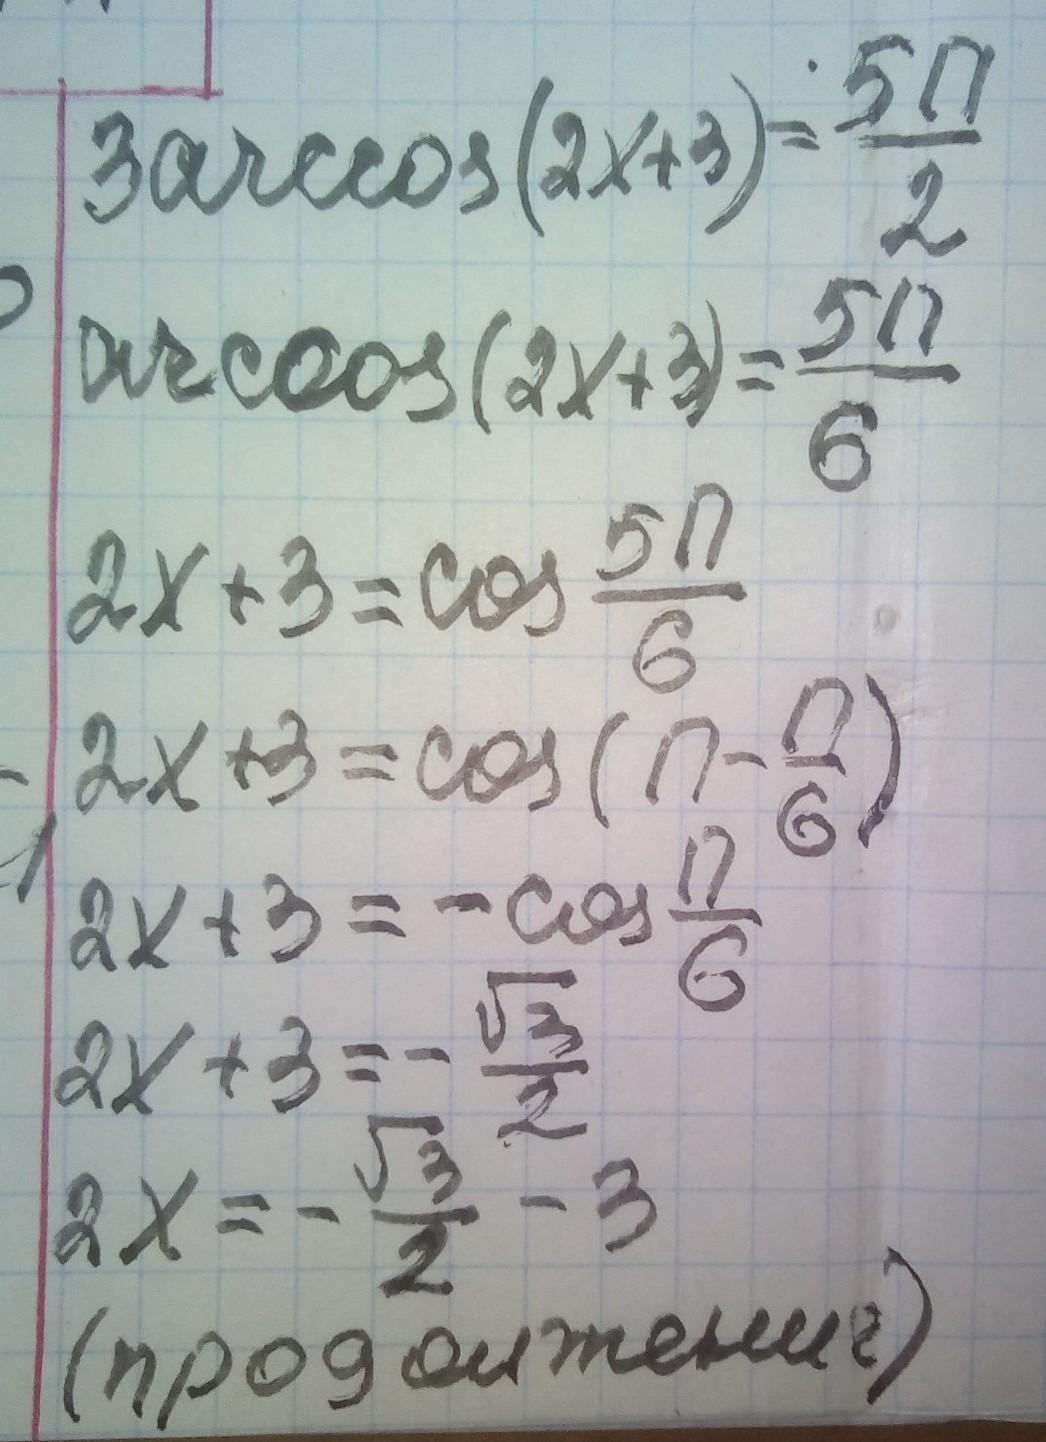 3arccos(2x+3)=5π/2
arccos(2x+3)=5π/6
2x+3=cos 5π/6
2x+3=cos(π-π/6)
2x+3=-cos π/6
2x+3=-√3/2
2x=-√3/2-3
(продолжение)